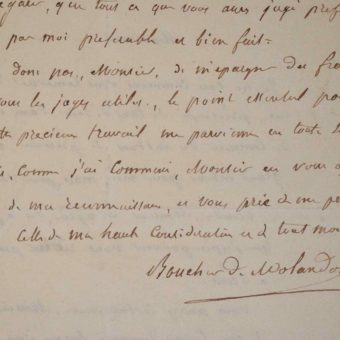 égard, que tout ce que vous aurez jugé préf
par moi preferable et bien fait.
donc pas, Monsieur, de m'épargner des fra
vous les jugez utiles, le point essentiel
précieux travail me parvienne en toute
comme j'ai commencé, Monsieur en vous
de ma reconnaissance, et vous prie de me
celle de ma haute considération et de tout mo
Boucher de Molandon